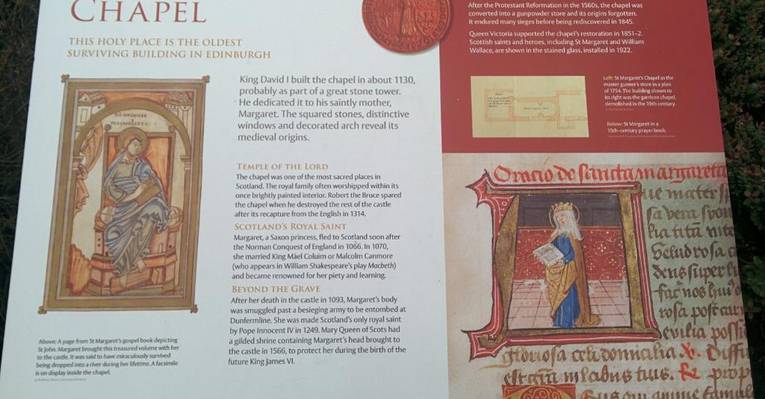 CHAPEL
THIS HOLY PLACE IS THE OLDEST
SURVIVING BUILDING IN EDINBURGH
King David I built the chapel in about 1130,
probably as part of a great stone tower.
He dedicated it to his saintly mother,
Margaret. The squared stones, distinctive
windows and decorated arch reveal its
medieval origins.
TEMPLE OF THE LORD
The chapel was one of the most sacred places in
Scotland. The royal family often worshipped within its
once brightly painted interior. Robert the Bruce spared
the chapel when he destroyed the rest of the castle
after its recapture from the English in 1314.
SCOTLAND'S ROYAL SAINT
Margaret, a Saxon princess, fled to Scotland soon after
the Norman Conquest of England in 1066. In 1070,
she married King Máel Coluim or Malcolm Canmore
(who appears in William Shakespeare's play Macbeth)
and became renowned for her piety and learning.
BEYOND THE GRAVE
After her death in the castle in 1093, Margaret's body
was smuggled past a besieging army to be entombed at
Dunfermline. She was made Scotland's only royal saint
by Pope Innocent IV in 1249. Mary Queen of Scots had
a gilded shrine containing Margaret's head brought to
the castle in 1566, to protect her during the birth of the
future King James VI.
Above: A page from St Margaret's gospel book depicting
St John. Margaret brought this treasured volume with her
to the castle. It was said to have miraculously survived
being dropped into a river during her lifetime. A facsimile
is on display inside the chapel.
After the Protestant Reformation in the 1560s, the chapel was
converted into a gunpowder store and its origins forgotten.
It endured many sieges before being rediscovered in 1845.
Queen Victoria supported the chapel's restoration in 1851–2.
Scottish saints and heroes, including St Margaret and William
Wallace, are shown in the stained glass, installed in 1922.
Left: St Margaret's Chapel as the
master gunner's store in a plan
of 1754. The building shown to
its right was the garrison chapel,
demolished in the 19th century.
Below: St Margaret in a
15th-century prayer book.
Oracio de sancta margareta
ue mater
sa vera